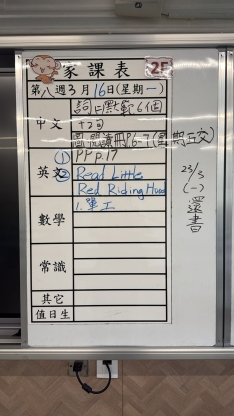 家課表 2E
第八週3月16日(星期一)
中文
詞口默範6個
+2句
圖,閱讀冊P.6-7(星期五交)
英文
① PP p.17
② Read Little
Red Riding Hood
數學
1.單工
常識
其它
值日生
23/3
(一)
還書